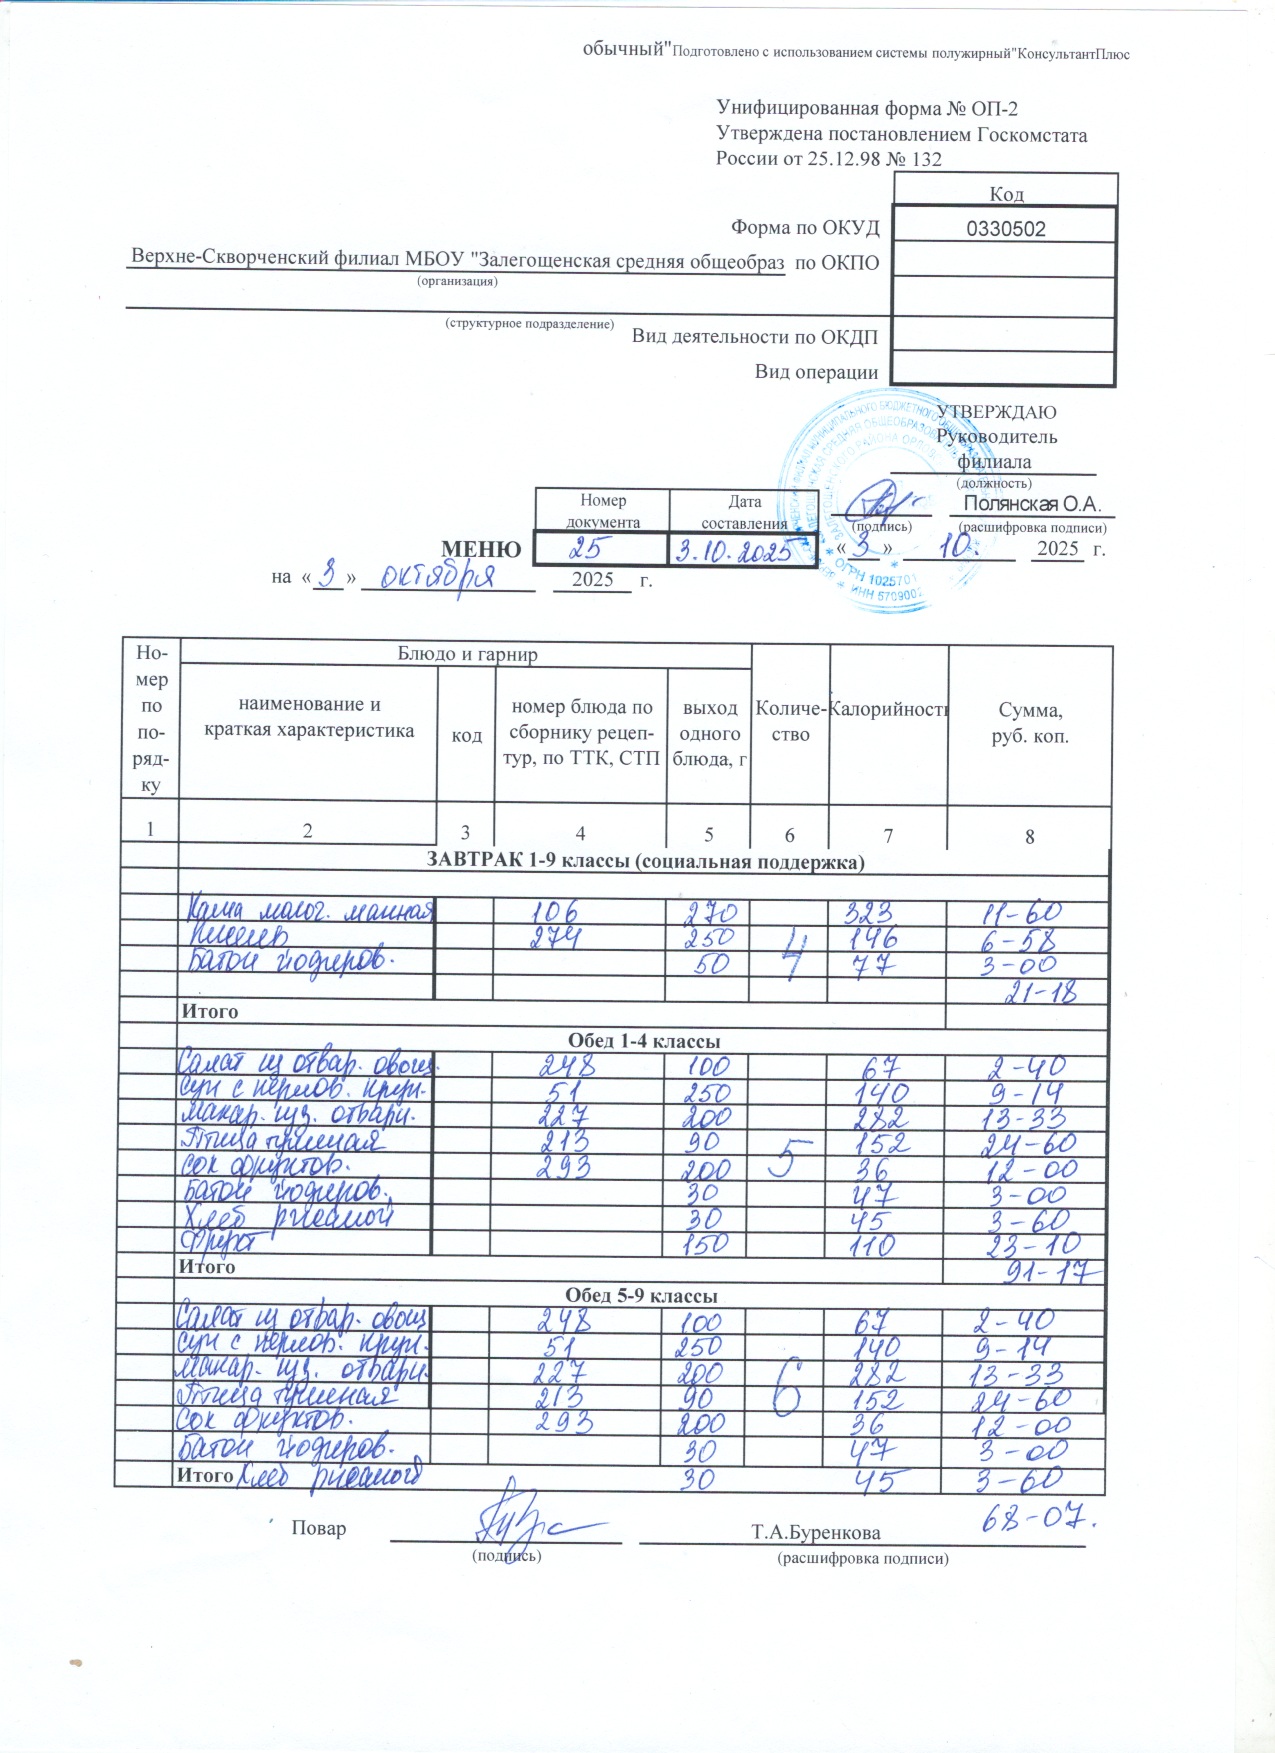 обычный"Подготовлено с использованием системы полужирный"КонсультантПлюс
Унифицированная форма № ОП-2
Утверждена постановлением Госкомстата
России от 25.12.98 № 132
Код
Форма по ОКУД 0330502
Верхне-Скворченский филиал МБОУ "Залегощенская средняя общеобраз по ОКПО
(организация)
(структурное подразделение)
Вид деятельности по ОКДП
Вид операции
УТВЕРЖДАЮ
Руководитель
филиала
(должность)
Полянская О.А.
(подпись) (расшифровка подписи)
Номер документа Дата составления
МЕНЮ 25 3.10.2025 « 3 » 10. 2025 г.
на « 3 » октября 2025 г.
ОГРН 1025701
ИНН 5709002
Но-мер по по-ряд-ку Блюдо и гарнир Количе-ство Калорийность Сумма, руб. коп.
наименование и краткая характеристика код номер блюда по сборнику рецеп-тур, по ТТК, СТП выход одного блюда, г
1 2 3 4 5 6 7 8
ЗАВТРАК 1-9 классы (социальная поддержка)
Каша молоч. манная 106 270 323 11-60
Кисель 274 250 4 146 6-58
Батон йодиров. 50 77 3-00
21-18
Итого
Обед 1-4 классы
Салат из отвар. овощ. 248 100 67 2-40
Суп с перлов. круп. 51 250 140 9-14
Макар. изд. отварн. 227 200 282 13-33
Птица тушеная 213 90 5 152 24-60
Сок фруктов. 293 200 36 12-00
Батон йодиров. 30 47 3-00
Хлеб ржаной 30 45 3-60
Фрукт 150 110 23-10
Итого 91-17
Обед 5-9 классы
Салат из отвар. овощ 248 100 67 2-40
Суп с перлов. круп. 51 250 140 9-14
Макар. изд. отварн. 227 200 6 282 13-33
Птица тушеная 213 90 152 24-60
Сок фруктов. 293 200 36 12-00
Батон йодиров. 30 47 3-00
Итого Хлеб ржаной 30 45 3-60
68-07.
Повар Т.А.Буренкова
(подпись) (расшифровка подписи)